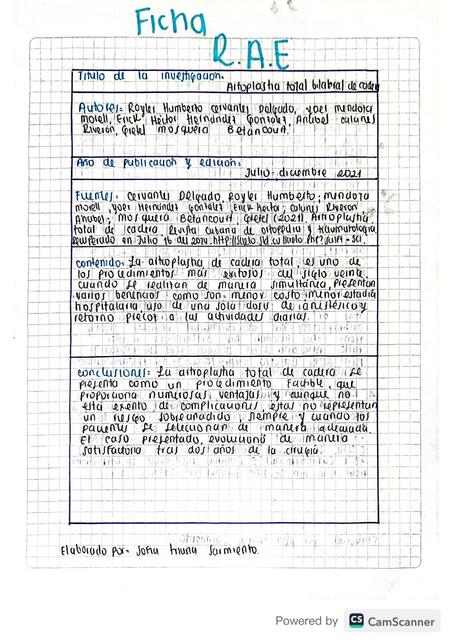 Ficha
R.A.E
Titulo de la investigación.
Artoplastia total bilabral de cadera
Autores: Royler Humberto cervantes Delgado, yoel mendoza
morell, Erick Héctor Hernández Gonzalez, Anubal calunes
Riverón, Gretel mosquera Betancourt.
Ano de publicación y edición:
Julio-diciembre 2021
Fuentes. cervantes Delgado, Royler Humberto; mendoza
morell, yoel Hernández Gonzalez, Erick Hector; calunes Riverón
Anubal; mosquera Betancourt, Gretel (2021) Artroplastia
total de cadera. Revista cubana de ortopedia y traumatologia
recuperado en Julio 16 del
contenido. La artroplastia, de cadera total, es uno de
los procedimientos más exitosos del siglo veinte,
cuando se realizan de manera simultánea, presentan
varios beneficios como son: menor costo menor estadia
hospitalaria uso de una sola dosis de anestésico y
retorno precoz a las actividades diarias.
conclusiones: La artroplastia total de cadera se
presenta como un procedimiento Factible, que
proporciona numerosas, ventajas y aunque no
está exento de complicaciones, estas no representan
un riesgo sobreañadido, siempre y cuando los
pacientes se seleccionan de manera adecuada.
El caso presentado, evolucionó de manera
satisfactoria tras dos años de la cirugía.
Elaborado por- Sofia triana Sarmiento.
Powered by CS CamScanner